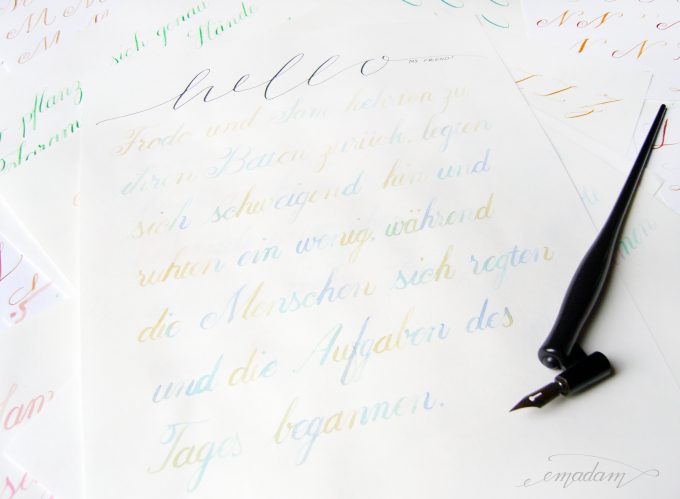 hello
MY FRIEND!
Frodo und Sam kehrten zu
ihren Betten zurück, legten
sich schweigend hin und
ruhten ein wenig, während
die Menschen sich regten
und die Aufgaben des
Tages begannen.
sich genau
Hände
pflanz
M M
M
N N
N
emadam